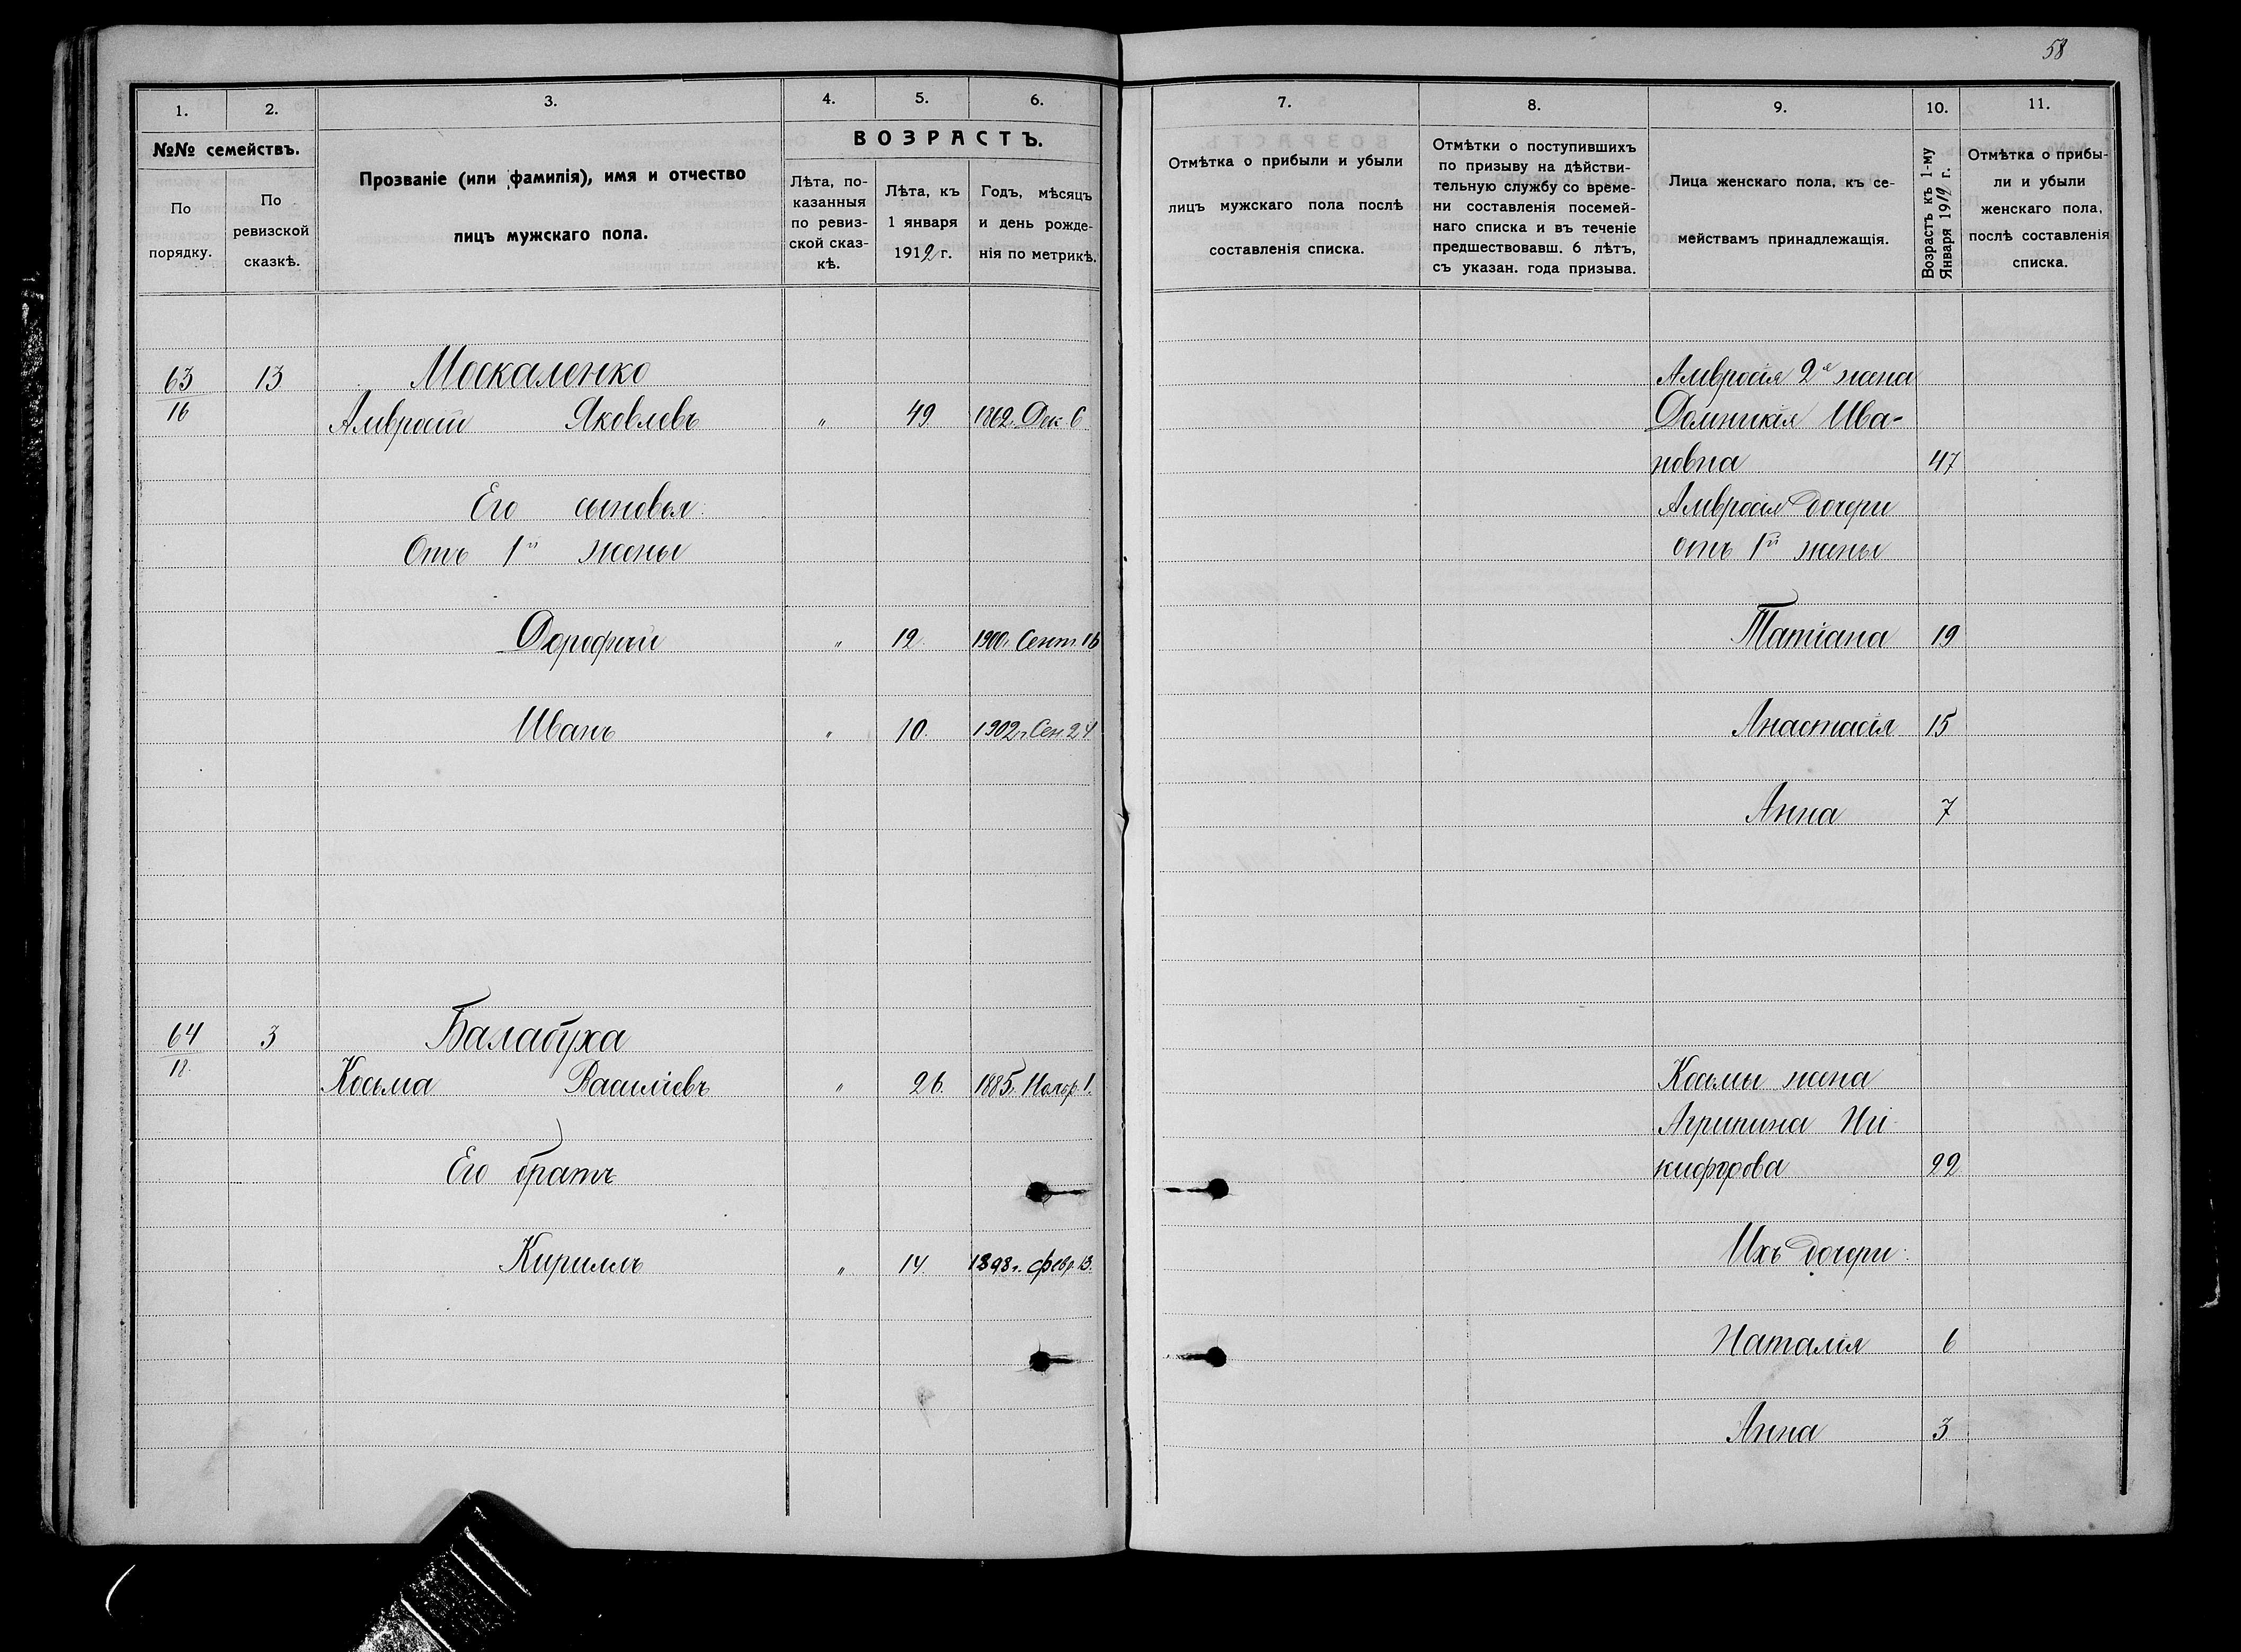 58
1. 2. 3. 4. 5. 6.
№№ семействъ.
По порядку.
По ревизской сказкѣ.
Прозваніе (или фамилія), имя и отчество
лицъ мужскаго пола.
ВОЗРАСТЪ.
Лѣта, по-
казанныя
по ревиз-
ской сказ-
кѣ.
Лѣта, къ
1 января
1912 г.
Годъ, мѣсяцъ
и день рожде-
нія по метрикѣ.
63/16 13 Москаленко
Амвросій Яковлевъ " 49 1862 г. Дек. 6
Его сыновья:
Отъ 1й жены
Дорофей " 12. 1900 г. Сент. 16
Иванъ " 10. 1902 г. Сен 24
64/12. 3 Балабуха
Косьма Василіевъ " 26. 1885 г. Ноябр. 1.
Его братъ
Кириллъ " 14. 1898 г. февр. 13.
7. 8. 9. 10. 11.
Отмѣтка о прибыли и убыли
лицъ мужскаго пола послѣ
составленія списка.
Отмѣтки о поступившихъ
по призыву на дѣйстви-
тельную службу со време-
ни составленія посемей-
наго списка и въ теченіе
предшествовавш. 6 лѣтъ,
съ указан. года призыва.
Лица женскаго пола, къ се-
мействамъ принадлежащія.
Возрастъ къ 1-му
Января 1912 г.
Отмѣтка о прибы-
ли и убыли
женскаго пола,
послѣ составленія
списка.
Амвросія 2я жена
Домникія Ива-
новна 47
Амвросія дочери
отъ 1й жены
Татіана 19
Анастасія 15
Анна 7
Косьмы жена
Агрипина Ни-
кифорова 22
Ихъ дочери:
Наталія 6
Анна 3